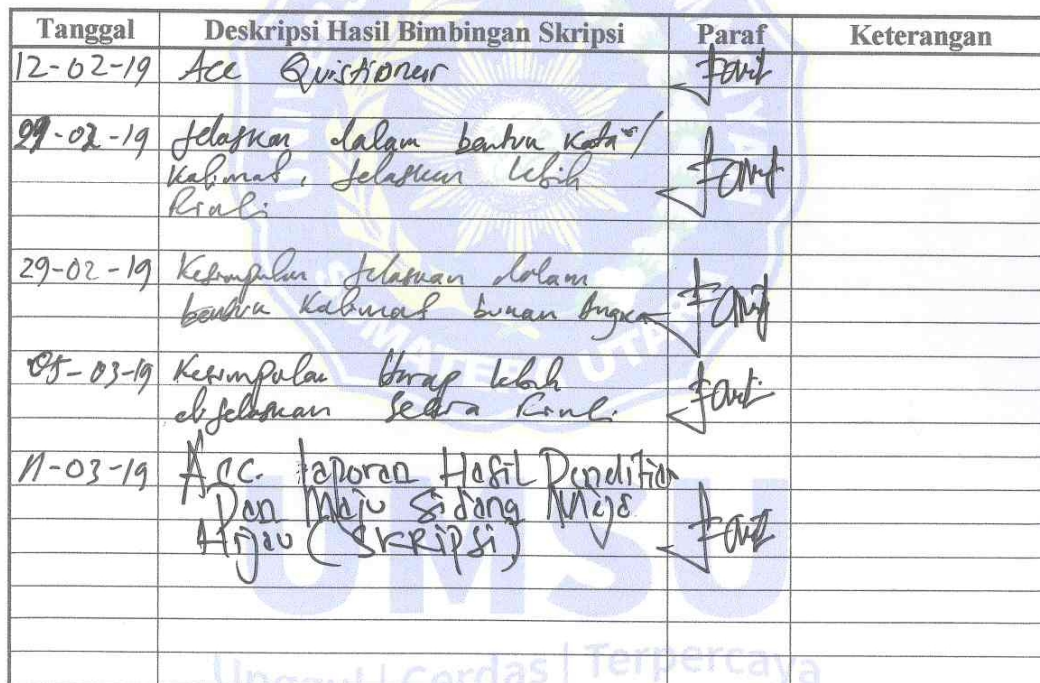 Tanggal Deskripsi Hasil Bimbingan Skripsi Paraf Keterangan
12-02-19 Acc Quistioner
-02-19 Jelaskan dalam bentuk kata"/
Kalimat, Jelaskan lebih
Rinci
29-02-19 Kesimpulan Jelaskan dalam
bentuk Kalimat bukan Angka
05-03-19 Kesimpulan Harap lebih
di jelaskan secara Rinci.
11-03-19 Acc. laporan Hasil Penelitian
Dan Maju Sidang Meja
Hijau (SKRipsi)
SUMATERA UTARA
UMSU
Unggul | Cerdas | Terpercaya